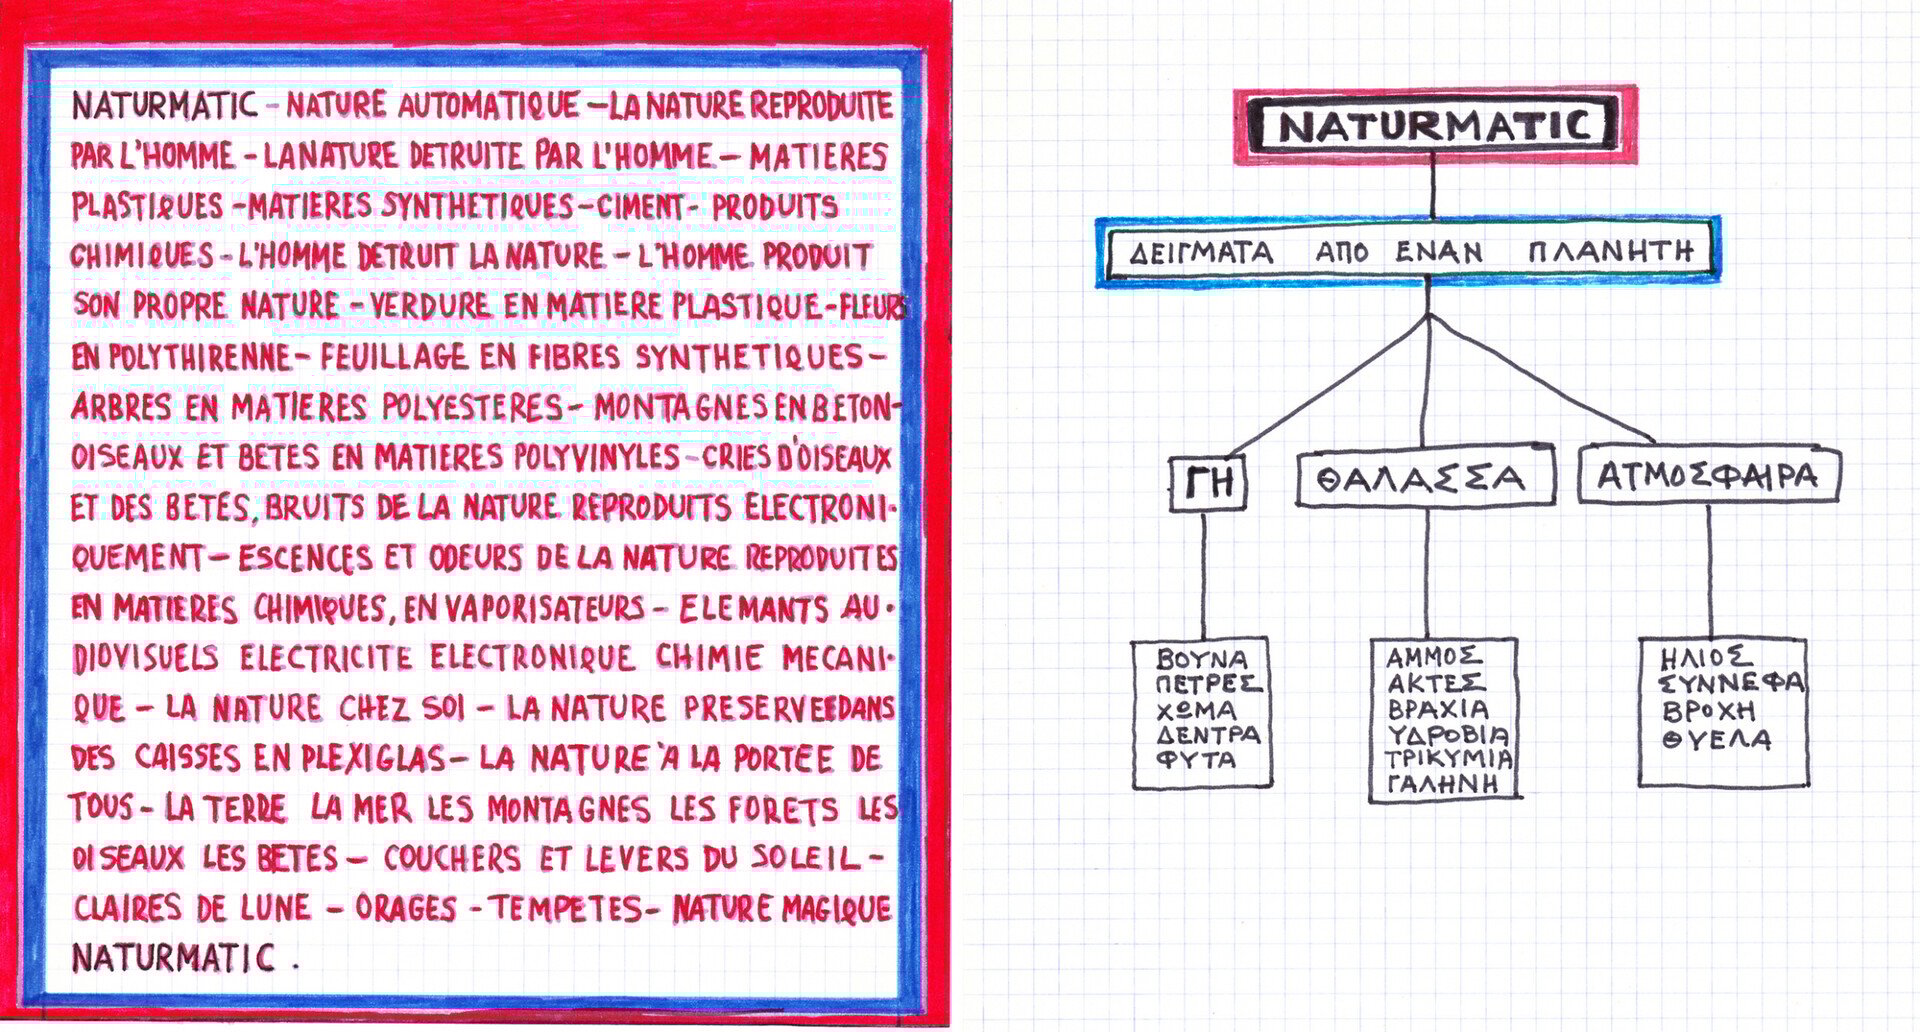 NATURMATIC - NATURE AUTOMATIQUE - LA NATURE REPRODUITE
PAR L'HOMME - LA NATURE DETRUITE PAR L'HOMME - MATIERES
PLASTIQUES - MATIERES SYNTHETIQUES - CIMENT - PRODUITS
CHIMIQUES - L'HOMME DETRUIT LA NATURE - L'HOMME PRODUIT
SON PROPRE NATURE - VERDURE EN MATIERE PLASTIQUE - FLEURS
EN POLYTHIRENNE - FEUILLAGE EN FIBRES SYNTHETIQUES -
ARBRES EN MATIERES POLYESTERES - MONTAGNES EN BETON -
OISEAUX ET BETES EN MATIERES POLYVINYLES - CRIES D'OISEAUX
ET DES BETES, BRUITS DE LA NATURE REPRODUITS ELECTRONI-
QUEMENT - ESCENCES ET ODEURS DE LA NATURE REPRODUITES
EN MATIERES CHIMIQUES, EN VAPORISATEURS - ELEMANTS AU-
DIOVISUELS ELECTRICITE ELECTRONIQUE CHIMIE MECANI-
QUE - LA NATURE CHEZ SOI - LA NATURE PRESERVEE DANS
DES CAISSES EN PLEXIGLAS - LA NATURE À LA PORTEE DE
TOUS - LA TERRE LA MER LES MONTAGNES LES FORETS LES
OISEAUX LES BETES - COUCHERS ET LEVERS DU SOLEIL -
CLAIRES DE LUNE - ORAGES - TEMPETES - NATURE MAGIQUE
NATURMATIC .
NATURMATIC
ΔΕΙΓΜΑΤΑ ΑΠΟ ΕΝΑΝ ΠΛΑΝΗΤΗ
ΓΗ
ΘΑΛΑΣΣΑ
ΑΤΜΟΣΦΑΙΡΑ
ΒΟΥΝΑ
ΠΕΤΡΕΣ
ΧΩΜΑ
ΔΕΝΤΡΑ
ΦΥΤΑ
ΑΜΜΟΣ
ΑΚΤΕΣ
ΒΡΑΧΙΑ
ΥΔΡΟΒΙΑ
ΤΡΙΚΥΜΙΑ
ΓΑΛΗΝΗ
ΗΛΙΟΣ
ΣΥΝΝΕΦΑ
ΒΡΟΧΗ
ΘΥΕΛΑ